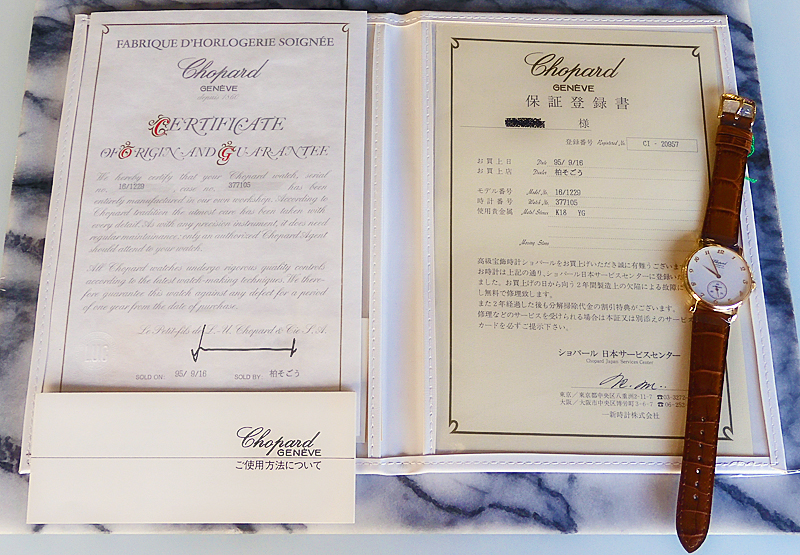 FABRIQUE D'HORLOGERIE SOIGNÉE
Chopard
GENÈVE
depuis 1860
CERTIFICATE
OF ORIGIN AND GUARANTEE
We hereby certify that your Chopard watch, serial
no. 16/1229 , case no. 377105 has been
entirely manufactured in our own workshop. According to
Chopard tradition the utmost care has been taken with
every detail. As with any precision instrument, it does need
regular maintenance; only an authorized Chopard Agent
should attend to your watch.
All Chopard watches undergo rigorous quality controls
according to the latest watch-making techniques. We there-
fore guarantee this watch against any defect for a period
of one year from the date of purchase.
Le Petit-fils de L.U. Chopard & Cie S.A.
SOLD ON: 95/9/16 SOLD BY: 柏そごう
Chopard
GENÈVE
ご使用方法について
Chopard
GENÈVE
保証登録書
様
登録番号 Registered No. CI - 20957
お買上日 Date 95/9/16
お買上店 Dealer 柏そごう
モデル番号 Model No. 16/1229
時計番号 Watch No. 377105
使用貴金属 Metal Stones K18 YG
高級宝飾時計ショパールをお買上げいただき誠に有難うございま
お時計は上記の通り、ショパール日本サービスセンターに登録いた
ました。お買上げの日から向う2年間製造上の欠陥による故障に
し無料で修理致します。
また2年経過した後も分解掃除代金の割引特典がございます。
修理などのサービスを受けられる場合は本証又は別添えのサービス
カードを必ずご提示下さい。
ショパール 日本サービスセンター
Chopard Japan Service Center
東京／東京都中央区八重洲2-11-7 ☎03-3272-
大阪／大阪市中央区博労町3-6-7 ☎06-252-
一新時計株式会社
Chopard